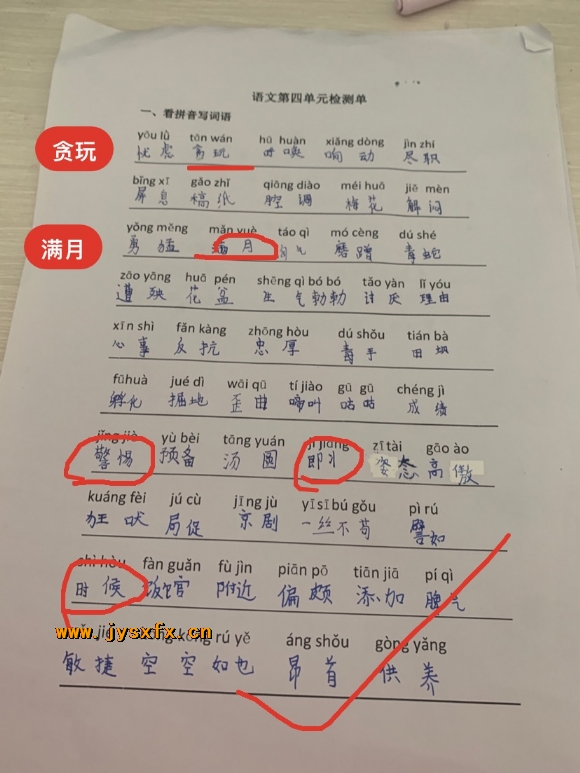 语文第四单元检测单
一、看拼音写词语
yōu lǜ tān wán hū huàn xiǎng dòng jìn zhí
贪玩
忧虑 贪玩 呼唤 响动 尽职
bǐng xī gǎo zhǐ qiāng diào méi huā jiě mèn
屏息 稿纸 腔调 梅花 解闷
yǒng měng mǎn yuè táo qì mó cèng dú shé
满月
勇猛 满月 淘气 磨蹭 毒蛇
zāo yāng huā pén shēng qì bó bó tǎo yàn lǐ yóu
遭殃 花盆 生气勃勃 讨厌 理由
xīn shì fǎn kàng zhōng hòu dú shǒu tián bà
心事 反抗 忠厚 毒手 田坝
fū huà jué dì wāi qū tí jiào gū gū chéng jì
孵化 掘地 歪曲 啼叫 咕咕 成绩
jǐng jiè yù bèi tāng yuán jí jiāng zī tài gāo ào
警惕 预备 汤圆 即 姿态 高傲
kuáng fèi jú cù jīng jù yī sī bù gǒu pì rú
狂吠 局促 京剧 一丝不苟 譬如
shì hòu fàn guǎn fù jìn piān pō tiān jiā pí qì
时候 饭馆 附近 偏颇 添加 脾气
www.jysxfx.cn
rú yě áng shǒu gòng yǎng
敏捷 空空如也 昂首 供养